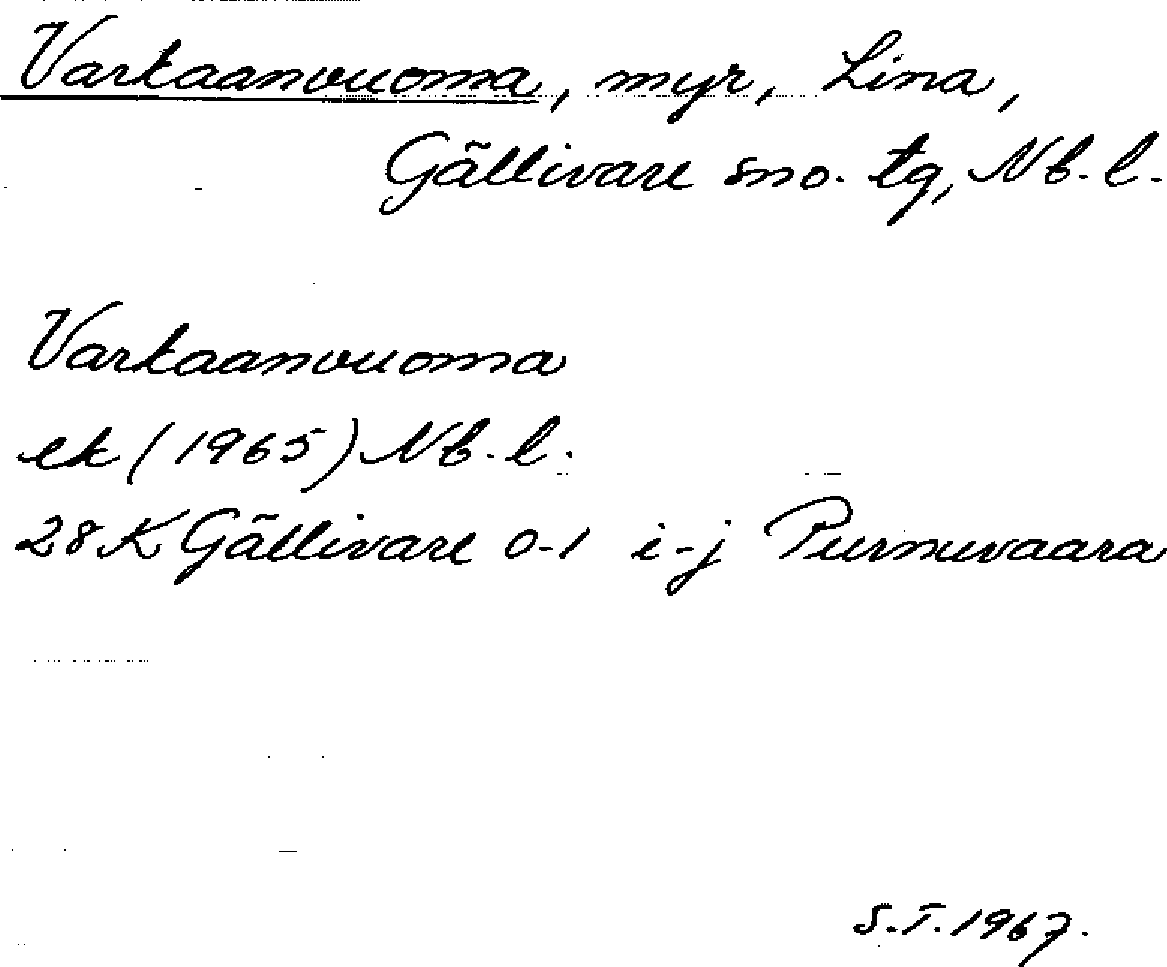 Varkaanvuoma, myr, Lina,
Gällivare sno. tg, Nb. l.
Varkaanvuoma
ek (1965) Nb. l.
28 K Gällivare 0-1 i-j Purnuvaara
S.T. 1967.